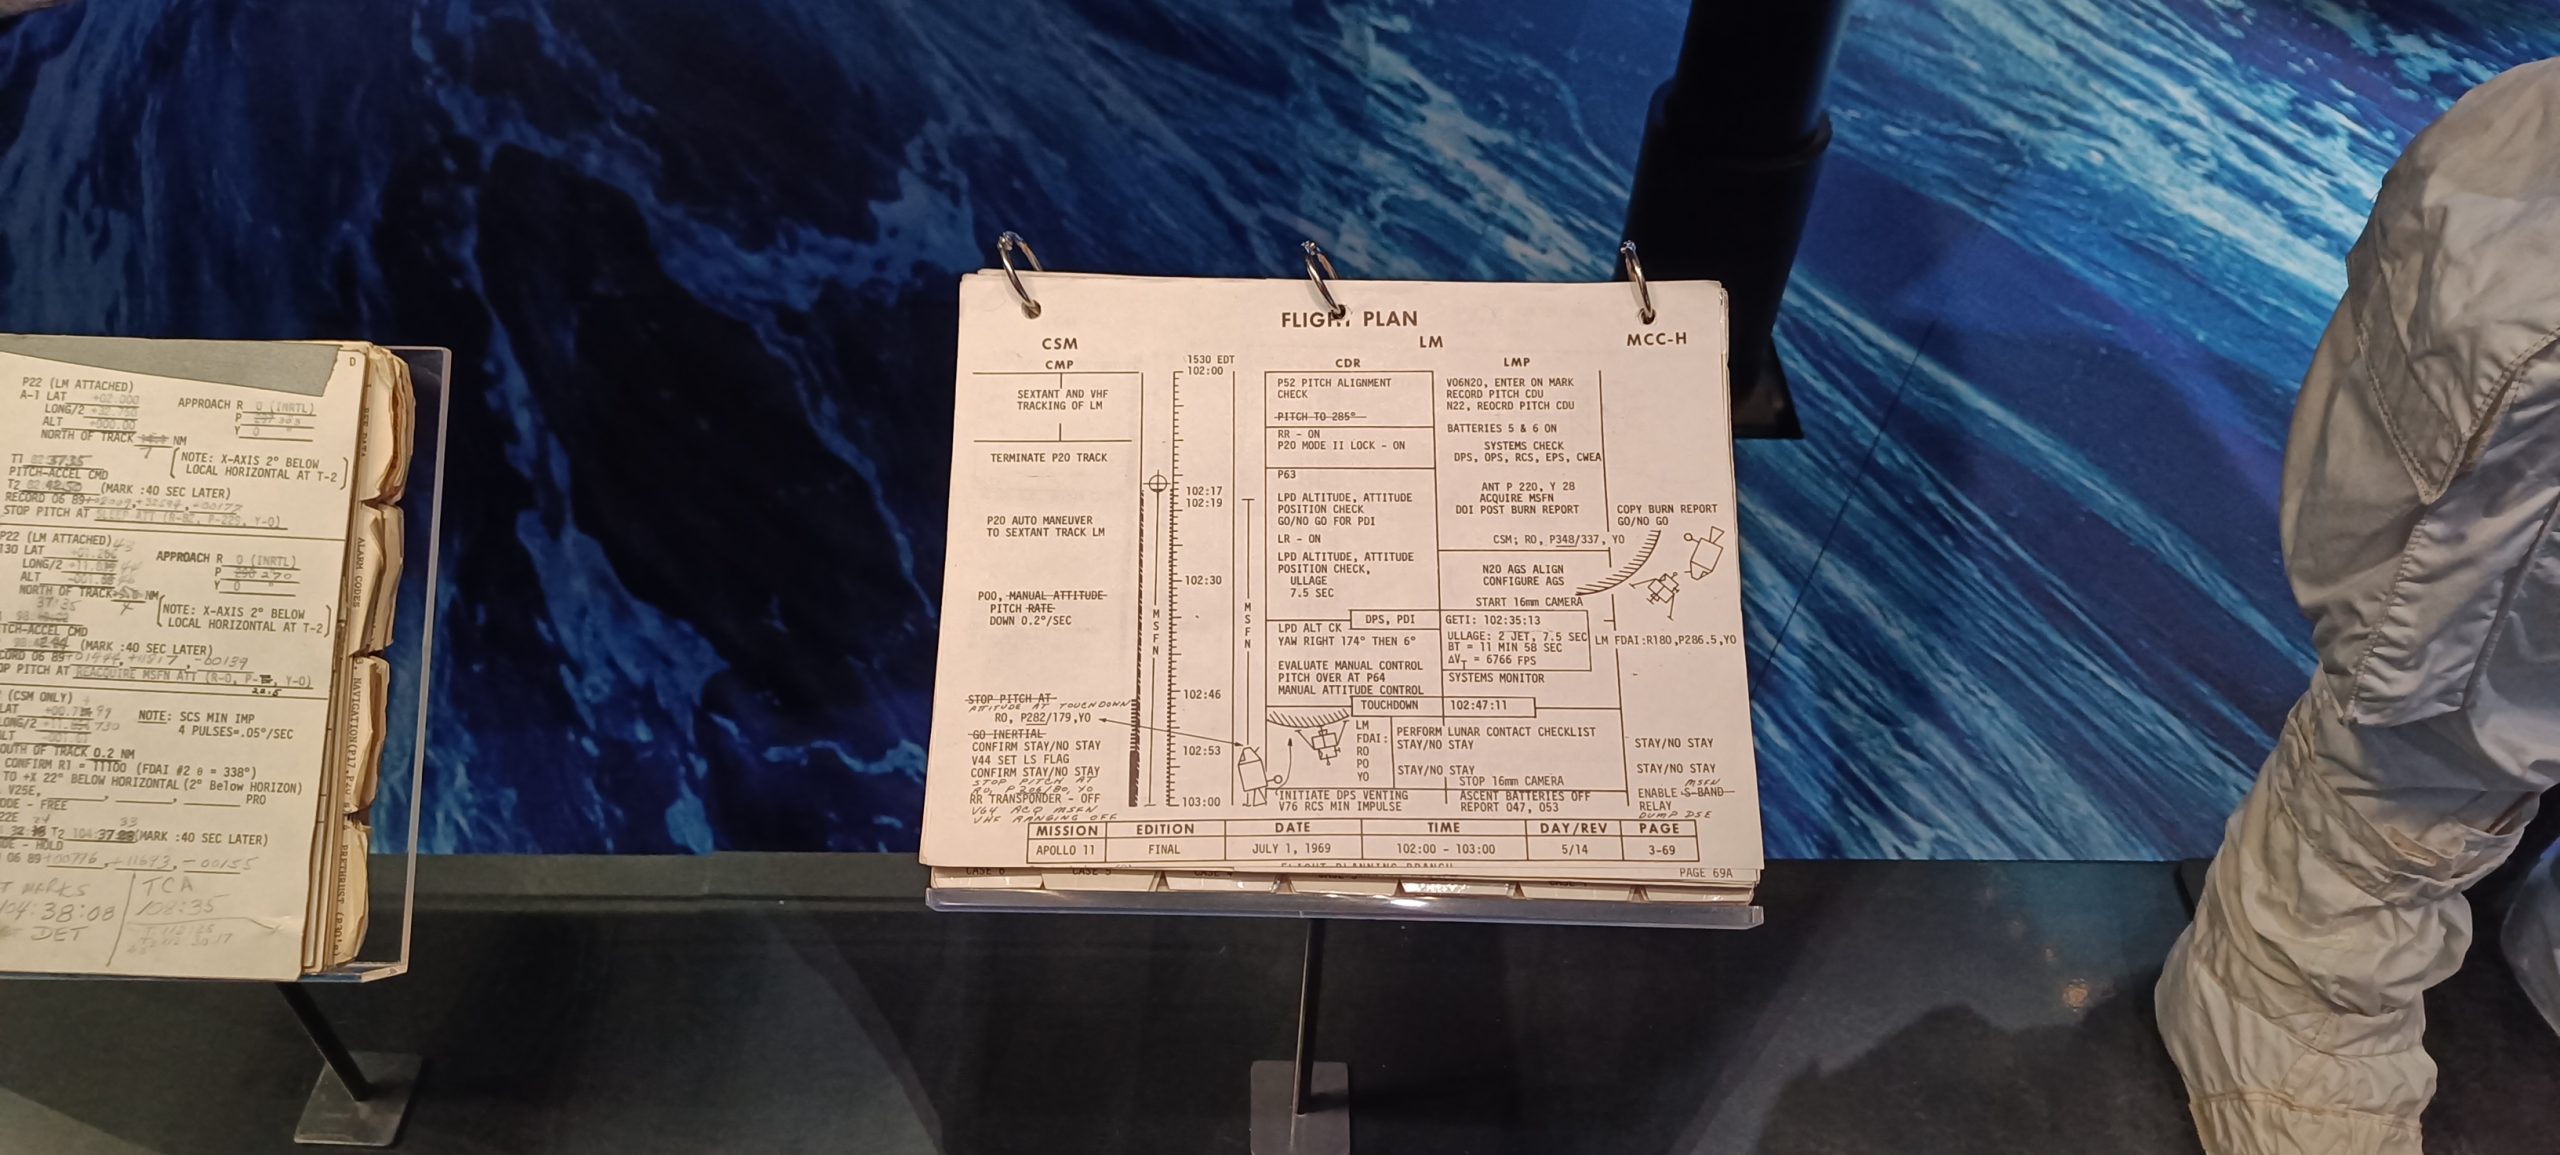 D
P22 (LM ATTACHED)
A-1 LAT +02.000
LONG/2 +32.750
ALT +000.00
NORTH OF TRACK NM
APPROACH R 0 (INRTL)
P
Y 0
NOTE: X-AXIS 2° BELOW
LOCAL HORIZONTAL AT T-2
T1
PITCH-ACCEL CMD
T2 (MARK :40 SEC LATER)
RECORD 06 89
STOP PITCH AT SLEEP ATT (R-82, P-229, Y-0)
P22 (LM ATTACHED)
130 LAT
LONG/2
ALT
NORTH OF TRACK NM
37:35
APPROACH R 0 (INRTL)
P 270
Y 0
NOTE: X-AXIS 2° BELOW
LOCAL HORIZONTAL AT T-2
TCH-ACCEL CMD
(MARK :40 SEC LATER)
CORD 06 89
OP PITCH AT REACQUIRE MSFN ATT (R-0, P- , Y-0)
(CSM ONLY)
LAT
LONG/2
ALT
NOTE: SCS MIN IMP
4 PULSES=.05°/SEC
OUTH OF TRACK 0.2 NM
CONFIRM R1 = 11100 (FDAI #2 θ = 338°)
TO +X 22° BELOW HORIZONTAL (2° Below HORIZON)
V25E, PRO
ODE - FREE
22E
T2 104 (MARK :40 SEC LATER)
DE - HOLD
06 89 +00776, +11693, -00155
T MARKS
104:38:08
DET
TCA
108:35
ALARM CODES
NAVIGATION
PRETHRUST
FLIGHT PLAN
CSM
LM
MCC-H
CMP
CDR
LMP
SEXTANT AND VHF
TRACKING OF LM
TERMINATE P20 TRACK
P20 AUTO MANEUVER
TO SEXTANT TRACK LM
P00, MANUAL ATTITUDE
PITCH RATE
DOWN 0.2°/SEC
STOP PITCH AT
ATTITUDE AT TOUCHDOWN
RO, P282/179,YO
GO INERTIAL
CONFIRM STAY/NO STAY
V44 SET LS FLAG
CONFIRM STAY/NO STAY
STOP PITCH AT
RR TRANSPONDER - OFF
V64 ACQ MSFN
VHF RANGING OFF
1530 EDT
102:00
102:17
102:19
102:30
102:46
102:53
103:00
MSFN
MSFN
P52 PITCH ALIGNMENT
CHECK
PITCH TO 285°
RR - ON
P20 MODE II LOCK - ON
P63
LPD ALTITUDE, ATTITUDE
POSITION CHECK
GO/NO GO FOR PDI
LR - ON
LPD ALTITUDE, ATTITUDE
POSITION CHECK,
ULLAGE
7.5 SEC
DPS, PDI
LPD ALT CK
YAW RIGHT 174° THEN 6°
EVALUATE MANUAL CONTROL
PITCH OVER AT P64
MANUAL ATTITUDE CONTROL
TOUCHDOWN
LM
FDAI:
RO
PO
YO
INITIATE DPS VENTING
V76 RCS MIN IMPULSE
V06N20, ENTER ON MARK
RECORD PITCH CDU
N22, REOCRD PITCH CDU
BATTERIES 5 & 6 ON
SYSTEMS CHECK
DPS, OPS, RCS, EPS, CWEA
ANT P 220, Y 28
ACQUIRE MSFN
DOI POST BURN REPORT
CSM; RO, P348/337, YO
N20 AGS ALIGN
CONFIGURE AGS
START 16mm CAMERA
GETI: 102:35:13
ULLAGE: 2 JET, 7.5 SEC
BT = 11 MIN 58 SEC
ΔVT = 6766 FPS
SYSTEMS MONITOR
102:47:11
PERFORM LUNAR CONTACT CHECKLIST
STAY/NO STAY
STAY/NO STAY
STOP 16mm CAMERA
ASCENT BATTERIES OFF
REPORT 047, 053
COPY BURN REPORT
GO/NO GO
LM FDAI:R180,P286.5,YO
STAY/NO STAY
STAY/NO STAY
MSFN
ENABLE S-BAND
RELAY
DUMP DSE
MISSION EDITION DATE TIME DAY/REV PAGE
APOLLO 11 FINAL JULY 1, 1969 102:00 - 103:00 5/14 3-69
FLIGHT PLANNING BRANCH
PAGE 69A
CASE 6
CASE 5